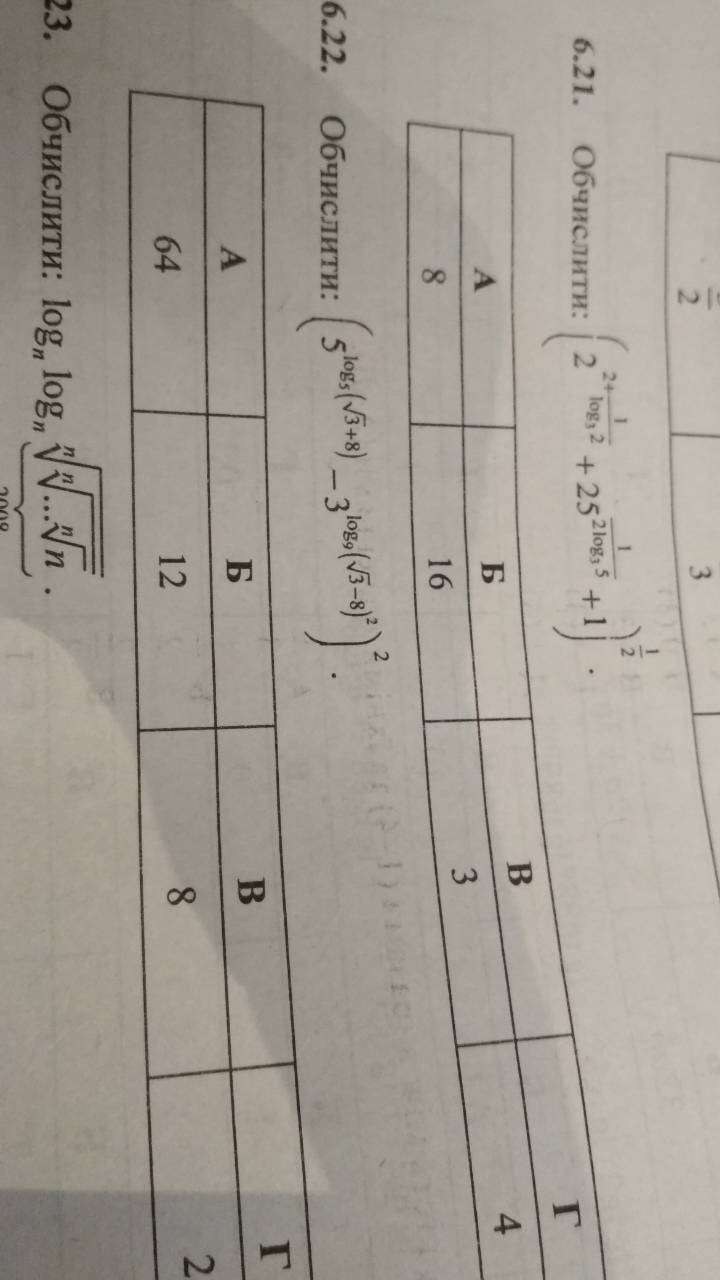 2 3
6.21. Обчислити: (2^{2+\frac{1}{\log_3 2}} + 25^{\frac{1}{2\log_3 5}} + 1)^{\frac{1}{2}}.
А Б В Г
8 16 3 4
6.22. Обчислити: (5^{\log_5(\sqrt{3}+8)} − 3^{\log_9(\sqrt{3}−8)^2})^2.
А Б В Г
64 12 8 2
23. Обчислити: \log_n \log_n \sqrt[n]{\sqrt[n]{...\sqrt[n]{n}}}.
2008